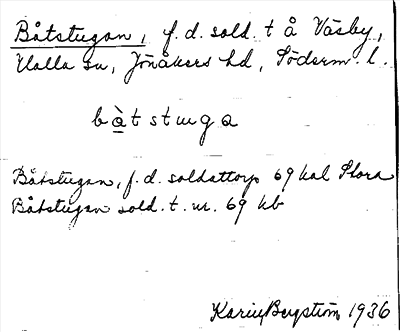 Båtstugan, f.d. sold. t å Väsby,
Halla sn, Jönåkers hd, Söderm. l.
båtstuga
Båtstugan, f.d. soldattorp 69 Kal Stora
Båtstugan sold. t. nr. 69 kb
Karin Bergström 1936